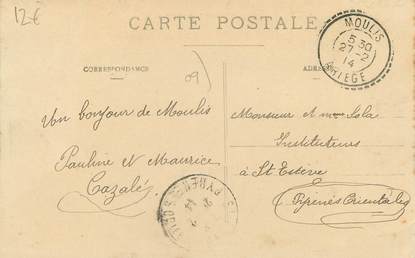 12€
CARTE POSTALE
MOULIS
5 30
27-2
14
ARIEGE
CORRESPONDANCE
09
Un bonjour de Moulis
Pauline et Maurice
Cazalé
Monsieur et Mme Isla
Instituteurs
à St Estève
Pyrénées Orientales